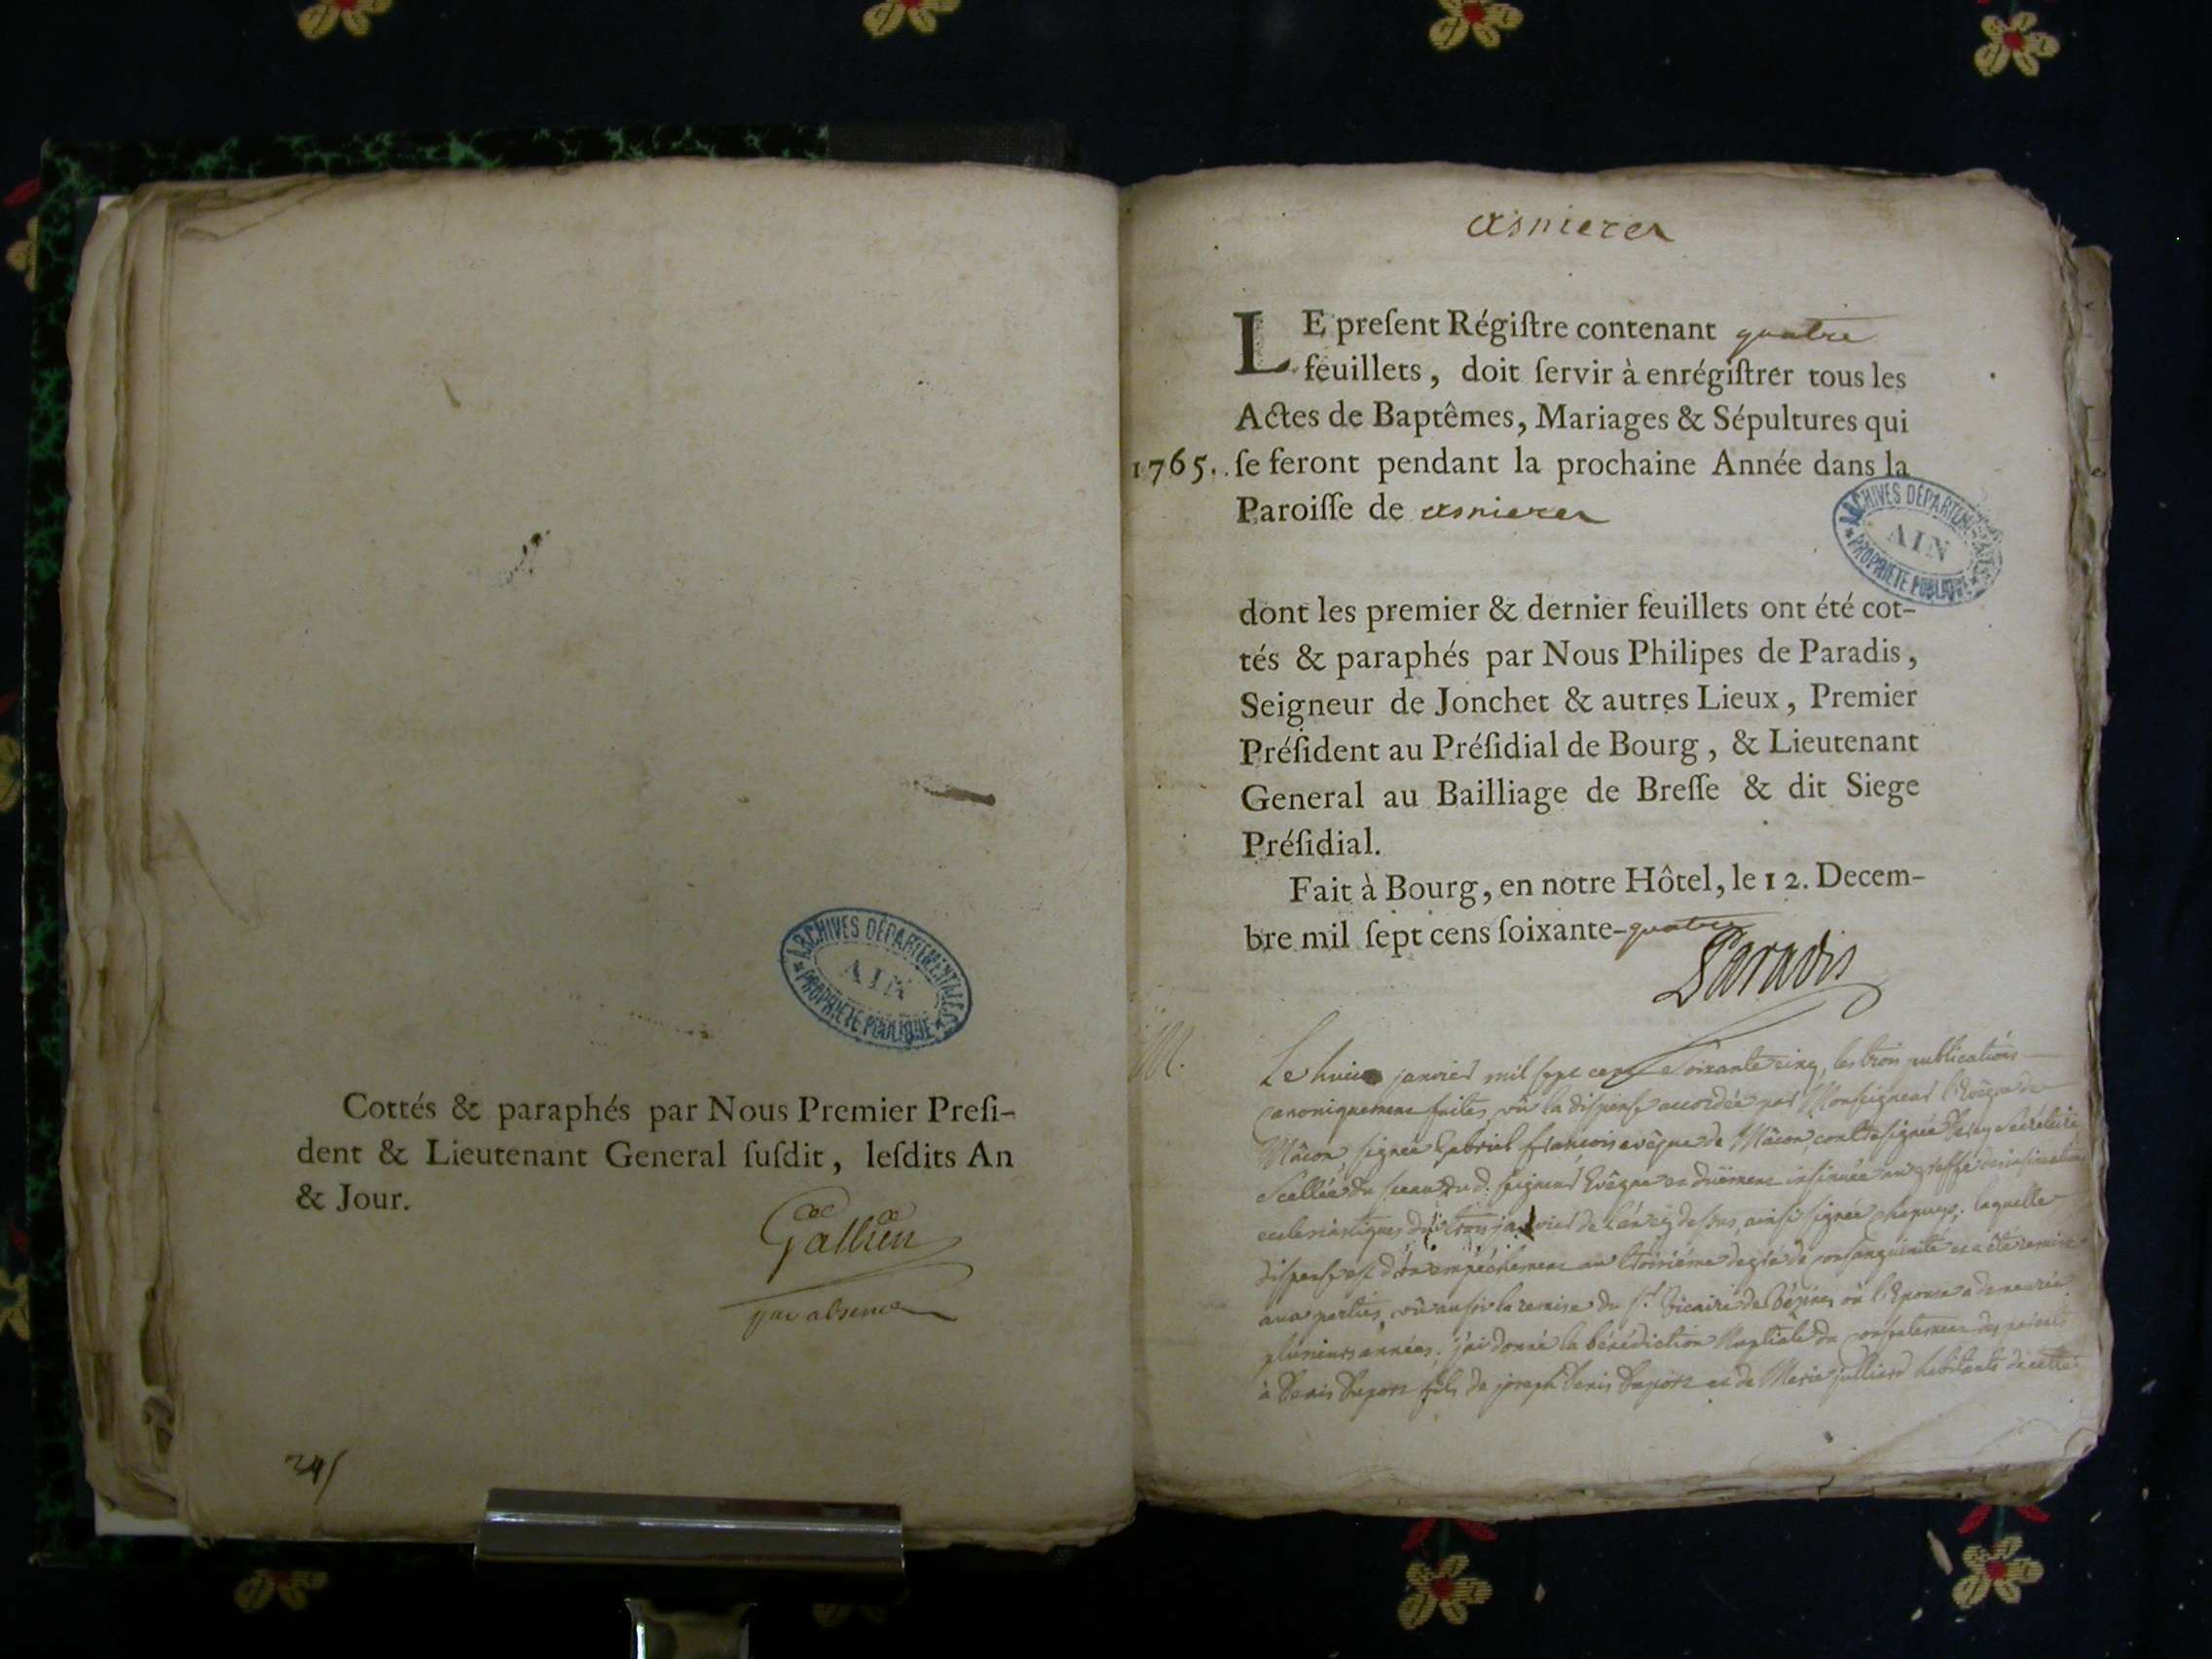 Cottés & paraphés par Nous Premier Presi-
dent & Lieutenant General susdit, lesdits An
& Jour.
Gallien
par absence
ARCHIVES DÉPARTEMENTALES
AIN
PROPRIETE PUBLIQUE
asnieres
LE present Régistre contenant quatre
feuillets, doit servir à enrégistrer tous les
Actes de Baptêmes, Mariages & Sépultures qui
1765. se feront pendant la prochaine Année dans la
Paroisse de asnieres
ARCHIVES DÉPARTEMENTALES
AIN
PROPRIETE PUBLIQUE
dont les premier & dernier feuillets ont été cot-
tés & paraphés par Nous Philipes de Paradis,
Seigneur de Jonchet & autres Lieux, Premier
Président au Présidial de Bourg, & Lieutenant
General au Bailliage de Bresse & dit Siege
Présidial.
Fait à Bourg, en notre Hôtel, le 12. Decem-
bre mil sept cens soixante-quatre
Paradis
M.
Le huit janvier mil sept cens Soixante cinq, les trois publications
canoniquement faites, vû la dispense accordée par Monseigneur l'Evêque de
Mâcon signée Gabriel françois evêque de Mâcon, contresignée Secrétaire
Scellée du sceau dud. seigneur Evêque et duëment insinuée au greffe des insinuations
ecclesiastiques du trois janvier de l'an cy dessus, ainsi signée chapuys, laquelle
dispense est d'un empêchement au troisiéme degré de consanguinité et a été remise
aux parties, vû aussi la remise du Sr. Vicaire de où l'Epouse a demeurée
plusieurs années. j'ai donné la bénédiction Nuptiale du consentement des parents
à Denis Duport fils de joseph Denis Duport et de Marie julliard habitants de cette